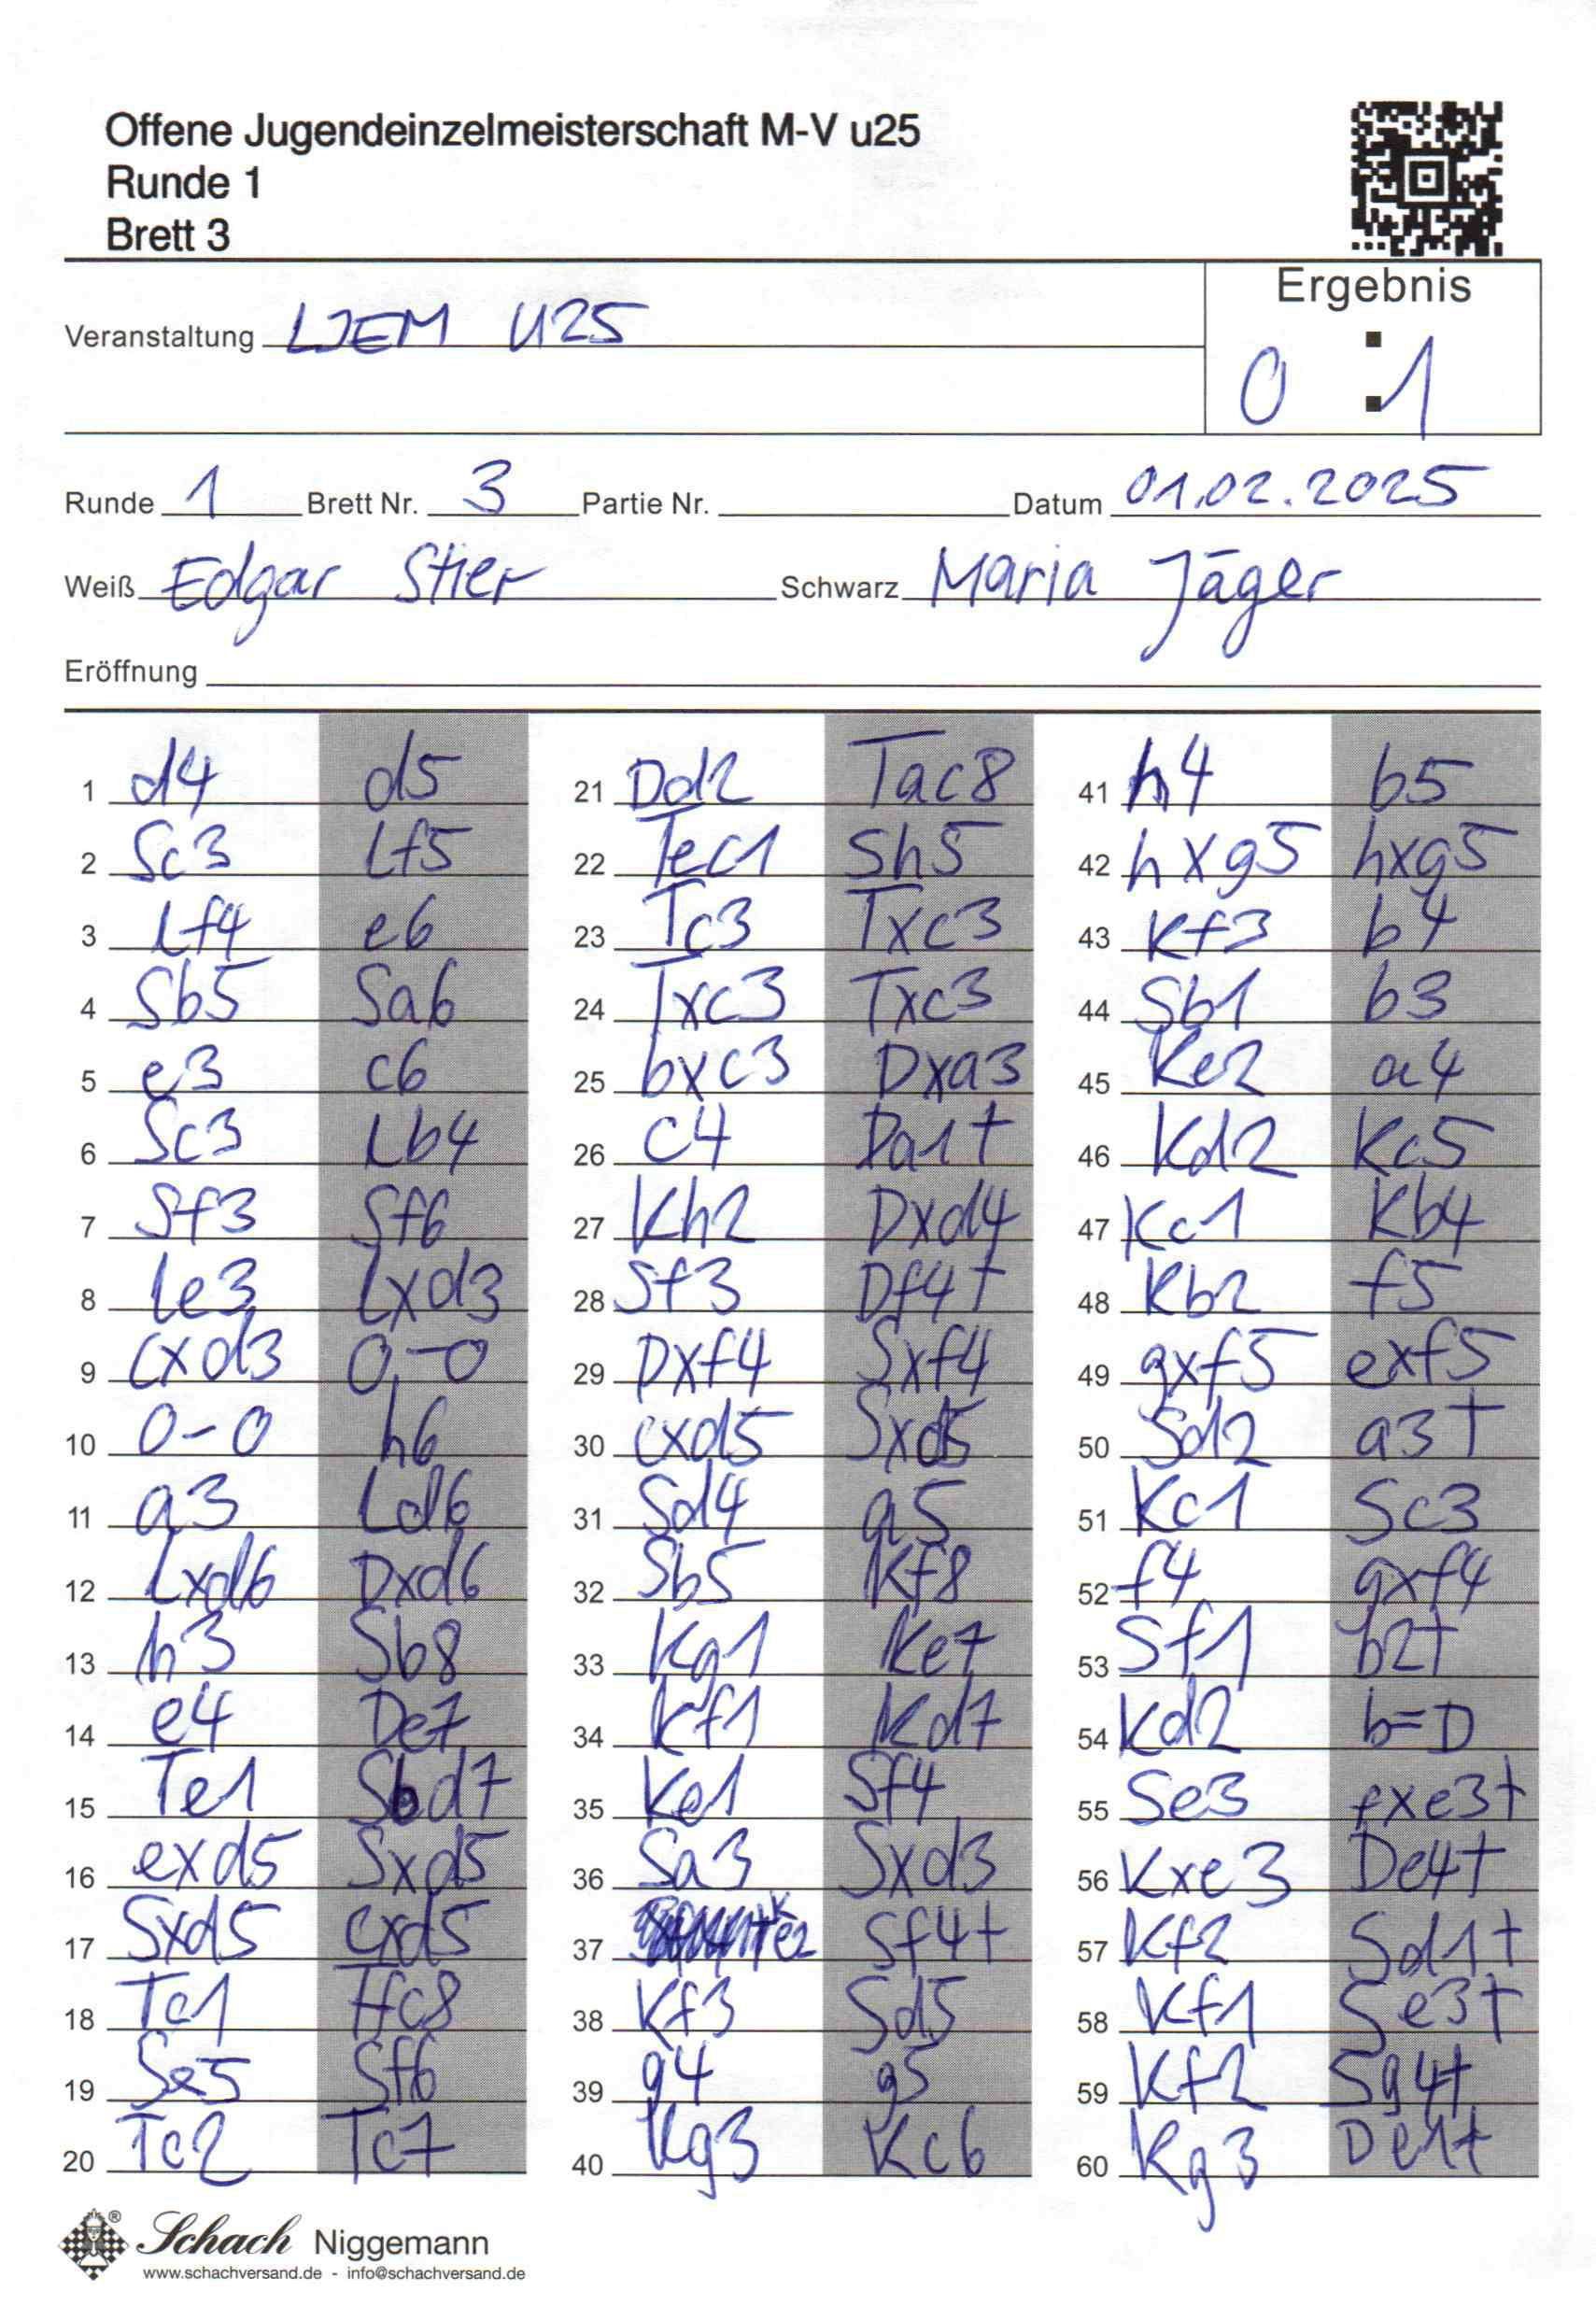 Offene Jugendeinzelmeisterschaft M-V u25
Runde 1
Brett 3
Ergebnis
Veranstaltung LJEM U25
0 : 1
Runde 1 Brett Nr. 3 Partie Nr. Datum 01.02.2025
Weiß Edgar Stier Schwarz Maria Jäger
Eröffnung
1 d4 d5
2 Sc3 Lf5
3 Lf4 e6
4 Sb5 Sa6
5 e3 c6
6 Sc3 Lb4
7 Sf3 Sf6
8 Le3 Lxd3
9 cxd3 0-0
10 0-0 h6
11 a3 Ld6
12 Lxd6 Dxd6
13 h3 Sb8
14 e4 De7
15 Te1 Sbd7
16 exd5 Sxd5
17 Sxd5 cxd5
18 Tc1 Tfc8
19 Se5 Sf6
20 Tc2 Tc7
21 Dd2 Tac8
22 Tec1 Sh5
23 Tc3 Txc3
24 Txc3 Txc3
25 bxc3 Dxa3
26 c4 Da1+
27 Kh2 Dxd4
28 Sf3 Df4+
29 Dxf4 Sxf4
30 cxd5 Sxd5
31 Sd4 a5
32 Sb5 Kf8
33 Kg1 Ke7
34 Kf1 Kd7
35 Ke1 Sf4
36 Sa3 Sxd3
37 Ke2 Sf4+
38 Kf3 Sd5
39 g4 g5
40 Kg3 Kc6
41 h4 b5
42 hxg5 hxg5
43 Kf3 b4
44 Sb1 b3
45 Ke2 a4
46 Kd2 Kc5
47 Kc1 Kb4
48 Kb2 f5
49 gxf5 exf5
50 Sd2 a3+
51 Kc1 Sc3
52 f4 gxf4
53 Sf1 b2+
54 Kd2 b=D
55 Se3 fxe3+
56 Kxe3 De4+
57 Kf2 Sd1+
58 Kf1 Se3+
59 Kf2 Sg4+
60 Kg3 De1+
Schach Niggemann
www.schachversand.de - info@schachversand.de